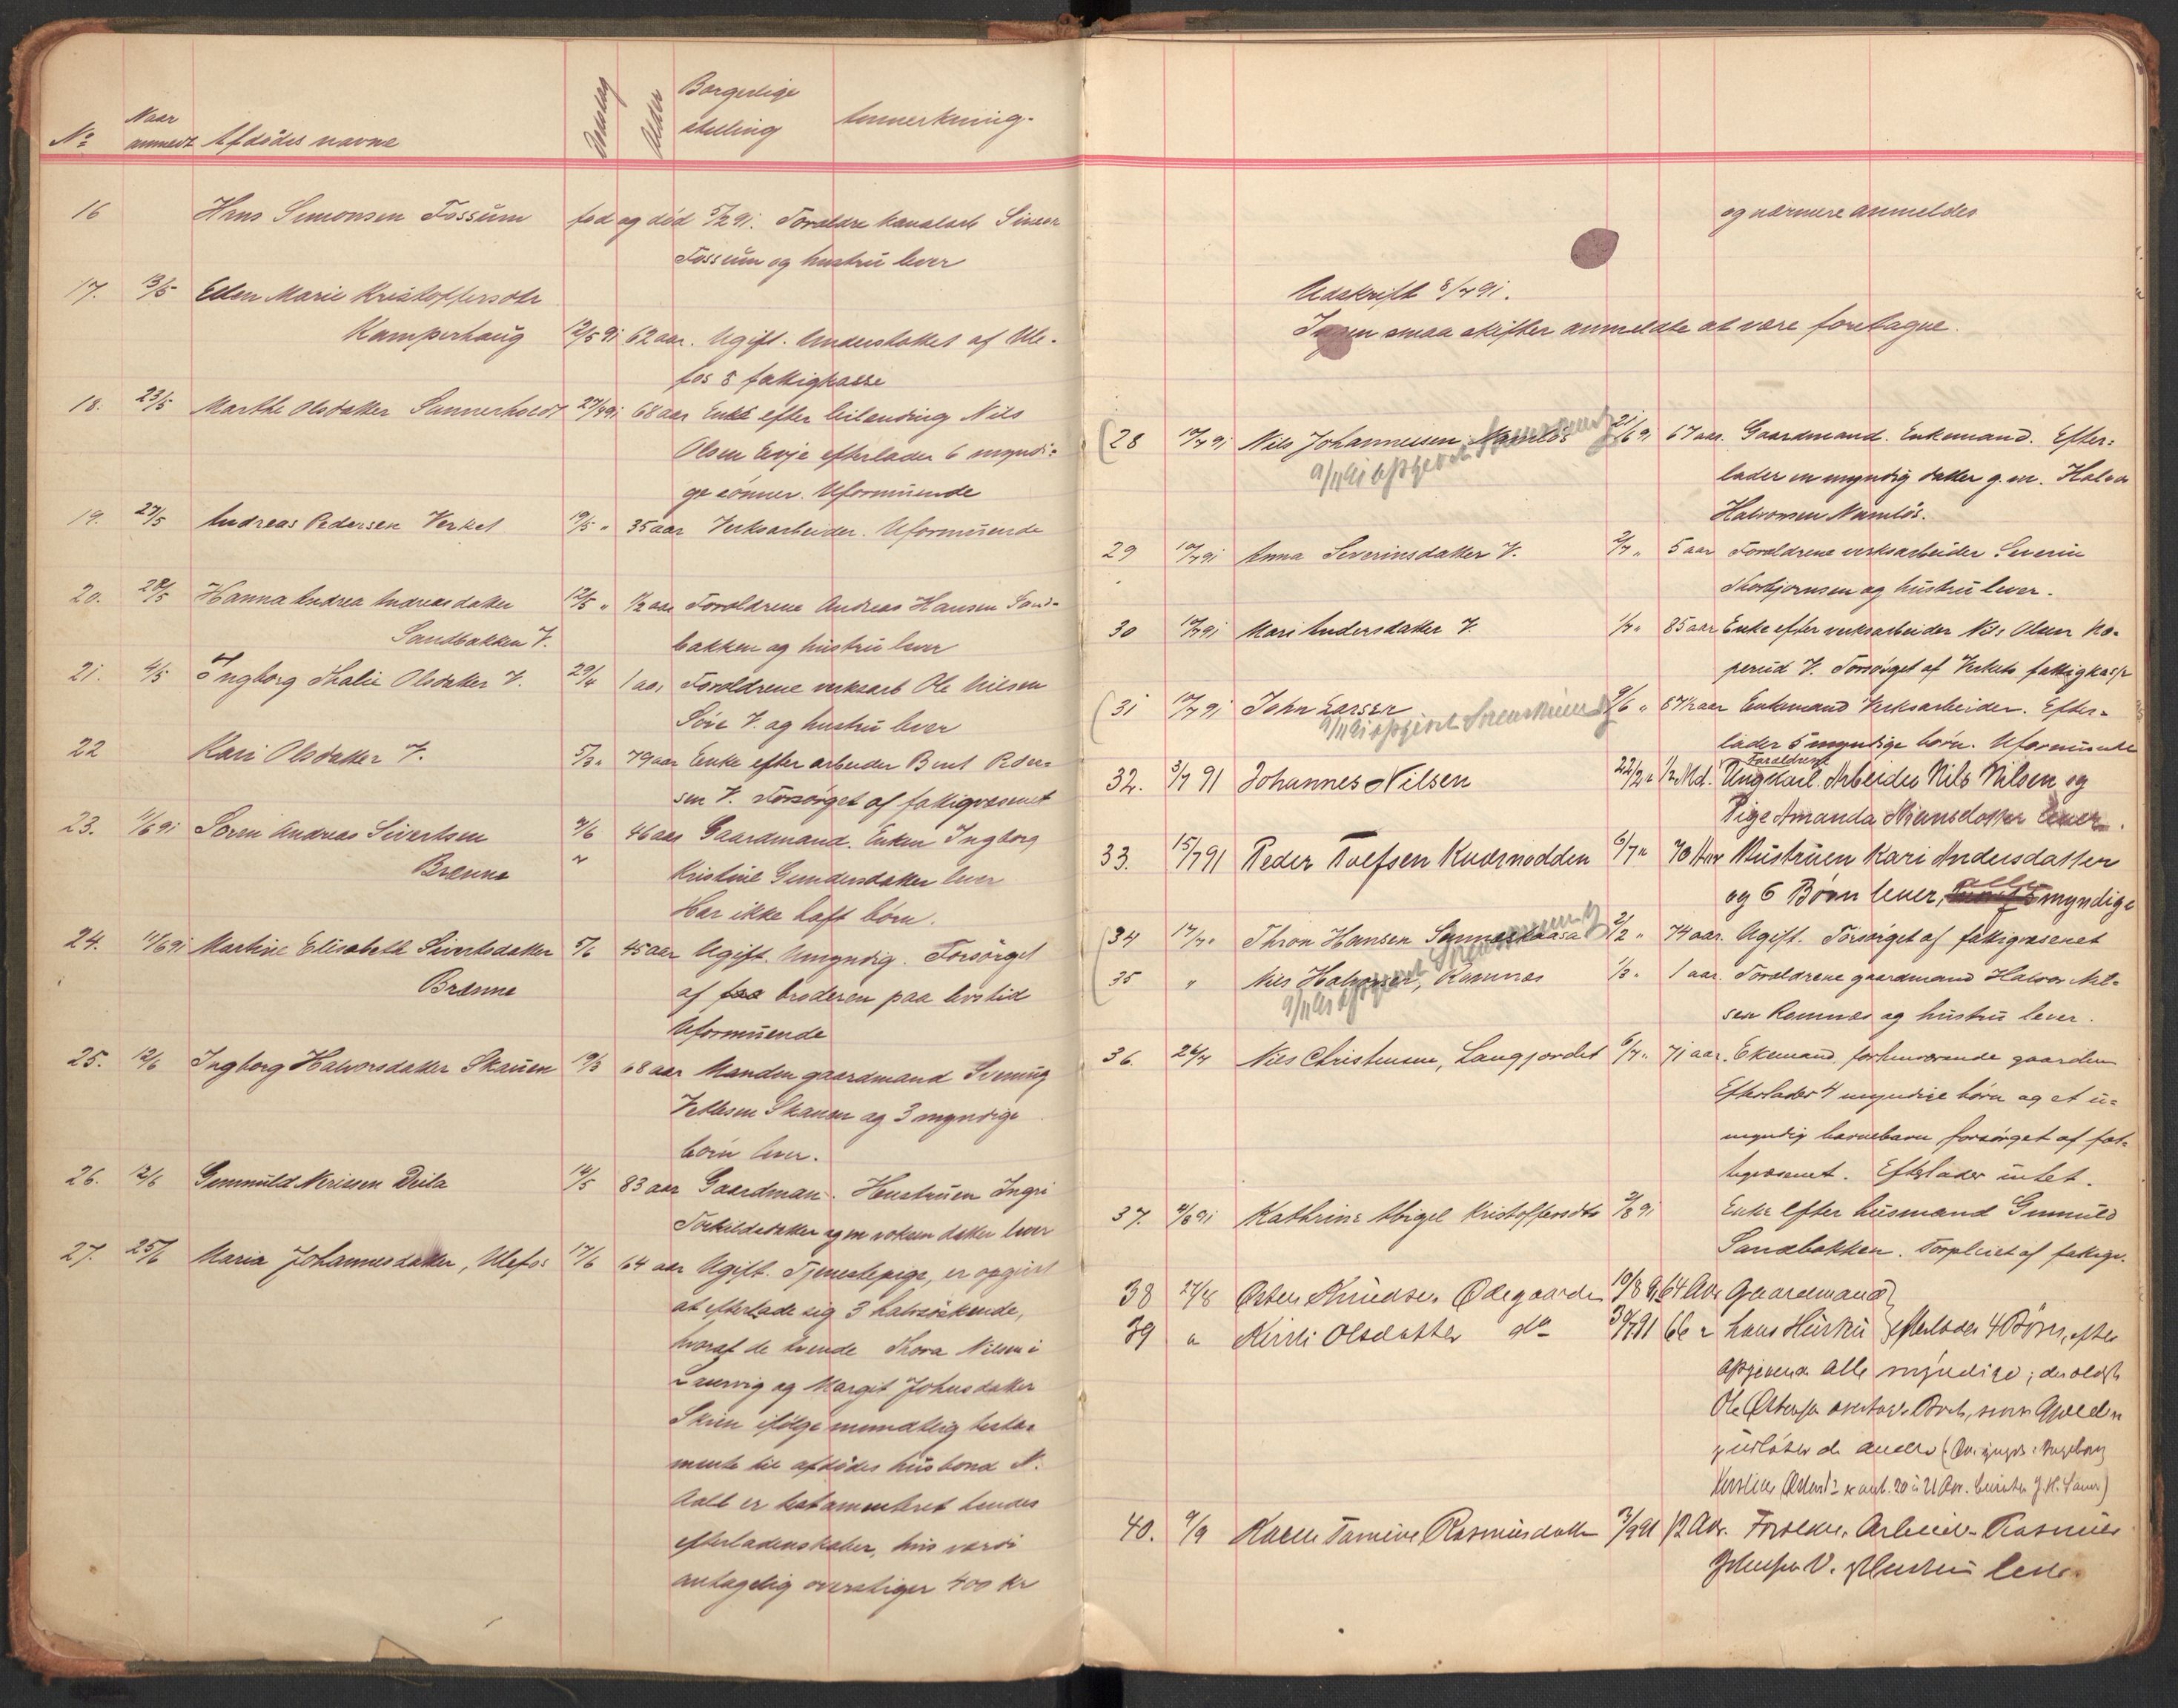 Naar
Borgerlige
No anmeldt Afdödes navne Dödsdag Alder stilling Anmerkning.
16 Hans Simonsen Fossum fød og död 5/2 91. Forældre kanalarb Simon
Fossum og hustru lever
17. 13/5 Ellen Marie Kristoffersdtr
Kamperhaug 12/5 91 62 aar. Ugift. Understøttet af Ule-
fos s fattigkasse
18. 23/5 Marthe Olsdatter Sannerholdt 27/4 91 68 aar Enke efter leilænding Nils
Olsen Evje efterlader 6 myndi-
ge sönner. Uformuende
19. 27/5 Andreas Pedersen Verket 19/5 " 35 aar Verksarbeider. Uformuende
20. 28/5 Hanna Andrea Andreasdatter 12/5 " 1/2 aar Forældrene Andreas Hansen Sand-
Sandbakken V. bakken og hustru lever
21. 4/5 Ingborg Thalie Olsdatter V. 29/4 1 aar Forældrene verksarb Ole Nilsen
Söve V. og hustru lever
22 Kari Olsdatter V. 5/3 " 79 aar Enke efter arbeider Bent Peder-
sen V. Forsörget af fattigvæsenet
23. 11/6 91 Søren Andreas Sivertsen 4/6 46 aar Gaardmand. Enken Ingborg
Brenne " Kristine Gundersdatter lever
Har ikke haft börn.
24. 11/6 91 Martine Elisabeth Sivertsdatter 5/6 45 aar Ugift. Umyndig. Forsörget
Brenne af faa broderen paa livstid
Uformuende
25. 12/6 Ingborg Halvorsdatter Skauen 19/3 68 aar Manden gaardmand Svenung
Vetlesen Skauen og 3 myndige
börn lever.
26. 12/6 Gunnuld Nirisen Deila 14/5 83 aar Gaardman. Hustruen Ingri
Torkildsdatter og en voksen datter lever
27. 25/6 Maria Johannesdatter, Ulefos 17/6 64 aar Ugift. Tjenestepige, er opgivet
at efterlade sig 3 halvsöskende,
hvoraf de tvende Thora Nilsen i
Laurvig og Margit Johnsdatter
Skien ifölge mundtlig testa-
mente til afdödes husbond N.
Aall er testamenteret hendes
efterladenskaber, hvis værdi
antagelig overstiger 400 kr
og nærmere anmeldes
Udskrift 8/7 91.
Ingen smaa skifter anmeldte at være foretagne.
28 10/7 91 Nils Johannessen Namlös 21/6 91 67 aar. Gaardmand. Enkemand. Efter-
9/11 91 opgivet
lader en myndig datter g. m. Halvor
Halvorsen Namlös.
29 10/7 91 Anna Severinsdatter V. 2/7 " 5 aar Forældrene verksarbeider Severin
Thorbjørnsen og hustru lever.
30 10/7 91 Mari Andersdatter V. 1/7 " 85 aar Enke efter verksarbeider Nils Olsen Ho-
perud V. Forsörget af Verkets fattigkasse
31 10/7 91 John Larsen 9/6 " 67 1/2 aar Enkemand Verksarbeider. Efter-
9/11 91 opgivet
lader 5 myndige börn. Uformuende
Forældrene
32. 3/7 91 Johannes Nilsen 22/2 " 1/2 Md. Ungkarl. Arbeider Nils Nilsen og
Pige Amanda lever.
33. 15/7 91 Peder Tolfsen Kværnodden 6/7 " 70 Aar Hustruen Kari Andersdatter
og 6 Börn lever, alle myndige
34 17/7 " Thron Hansen Sannæskaasa 2/2 " 74 aar. Ugift. Forsörget af fattigvæsenet
35 " Nils Halvorsen, Romnæs 1/3 " 1 aar. Forældrene gaardmand Halvor Nil-
9/11 91 opgivet
sen Romnæs og hustru lever.
36. 26/7 Nils Christensen, Langjordet 6/7 " 71 aar. Ekemand, forhenværende gaardm
Efterlader 4 myndige börn og et u-
myndig barnebarn forsörget af fat-
tigvæsenet. Efterlader intet.
37. 4/8 91 Kathrine Abigel Kristoffersdtr 2/8 91 Enke efter husmand Gunnuld
Sandbakken. Forpleiet af fattigv.
38 27/8 Østen Knudsen Ødegaarden 10/8 91 64 Aar Gaardmand
39 " Kirsti Olsdatter do 30/7 91 66 " hans Hustru Efterlader 4 Börn, efter
opgivende alle myndige; den ældste
Ole Østensen overtager Boets, Gjæld
udlöser de andre
40. 9/9 Karen Tomine Rasmusdatter 3/9 91 12 Aar. Forældre, Arbeider Rasmus
V. og Hustru lever